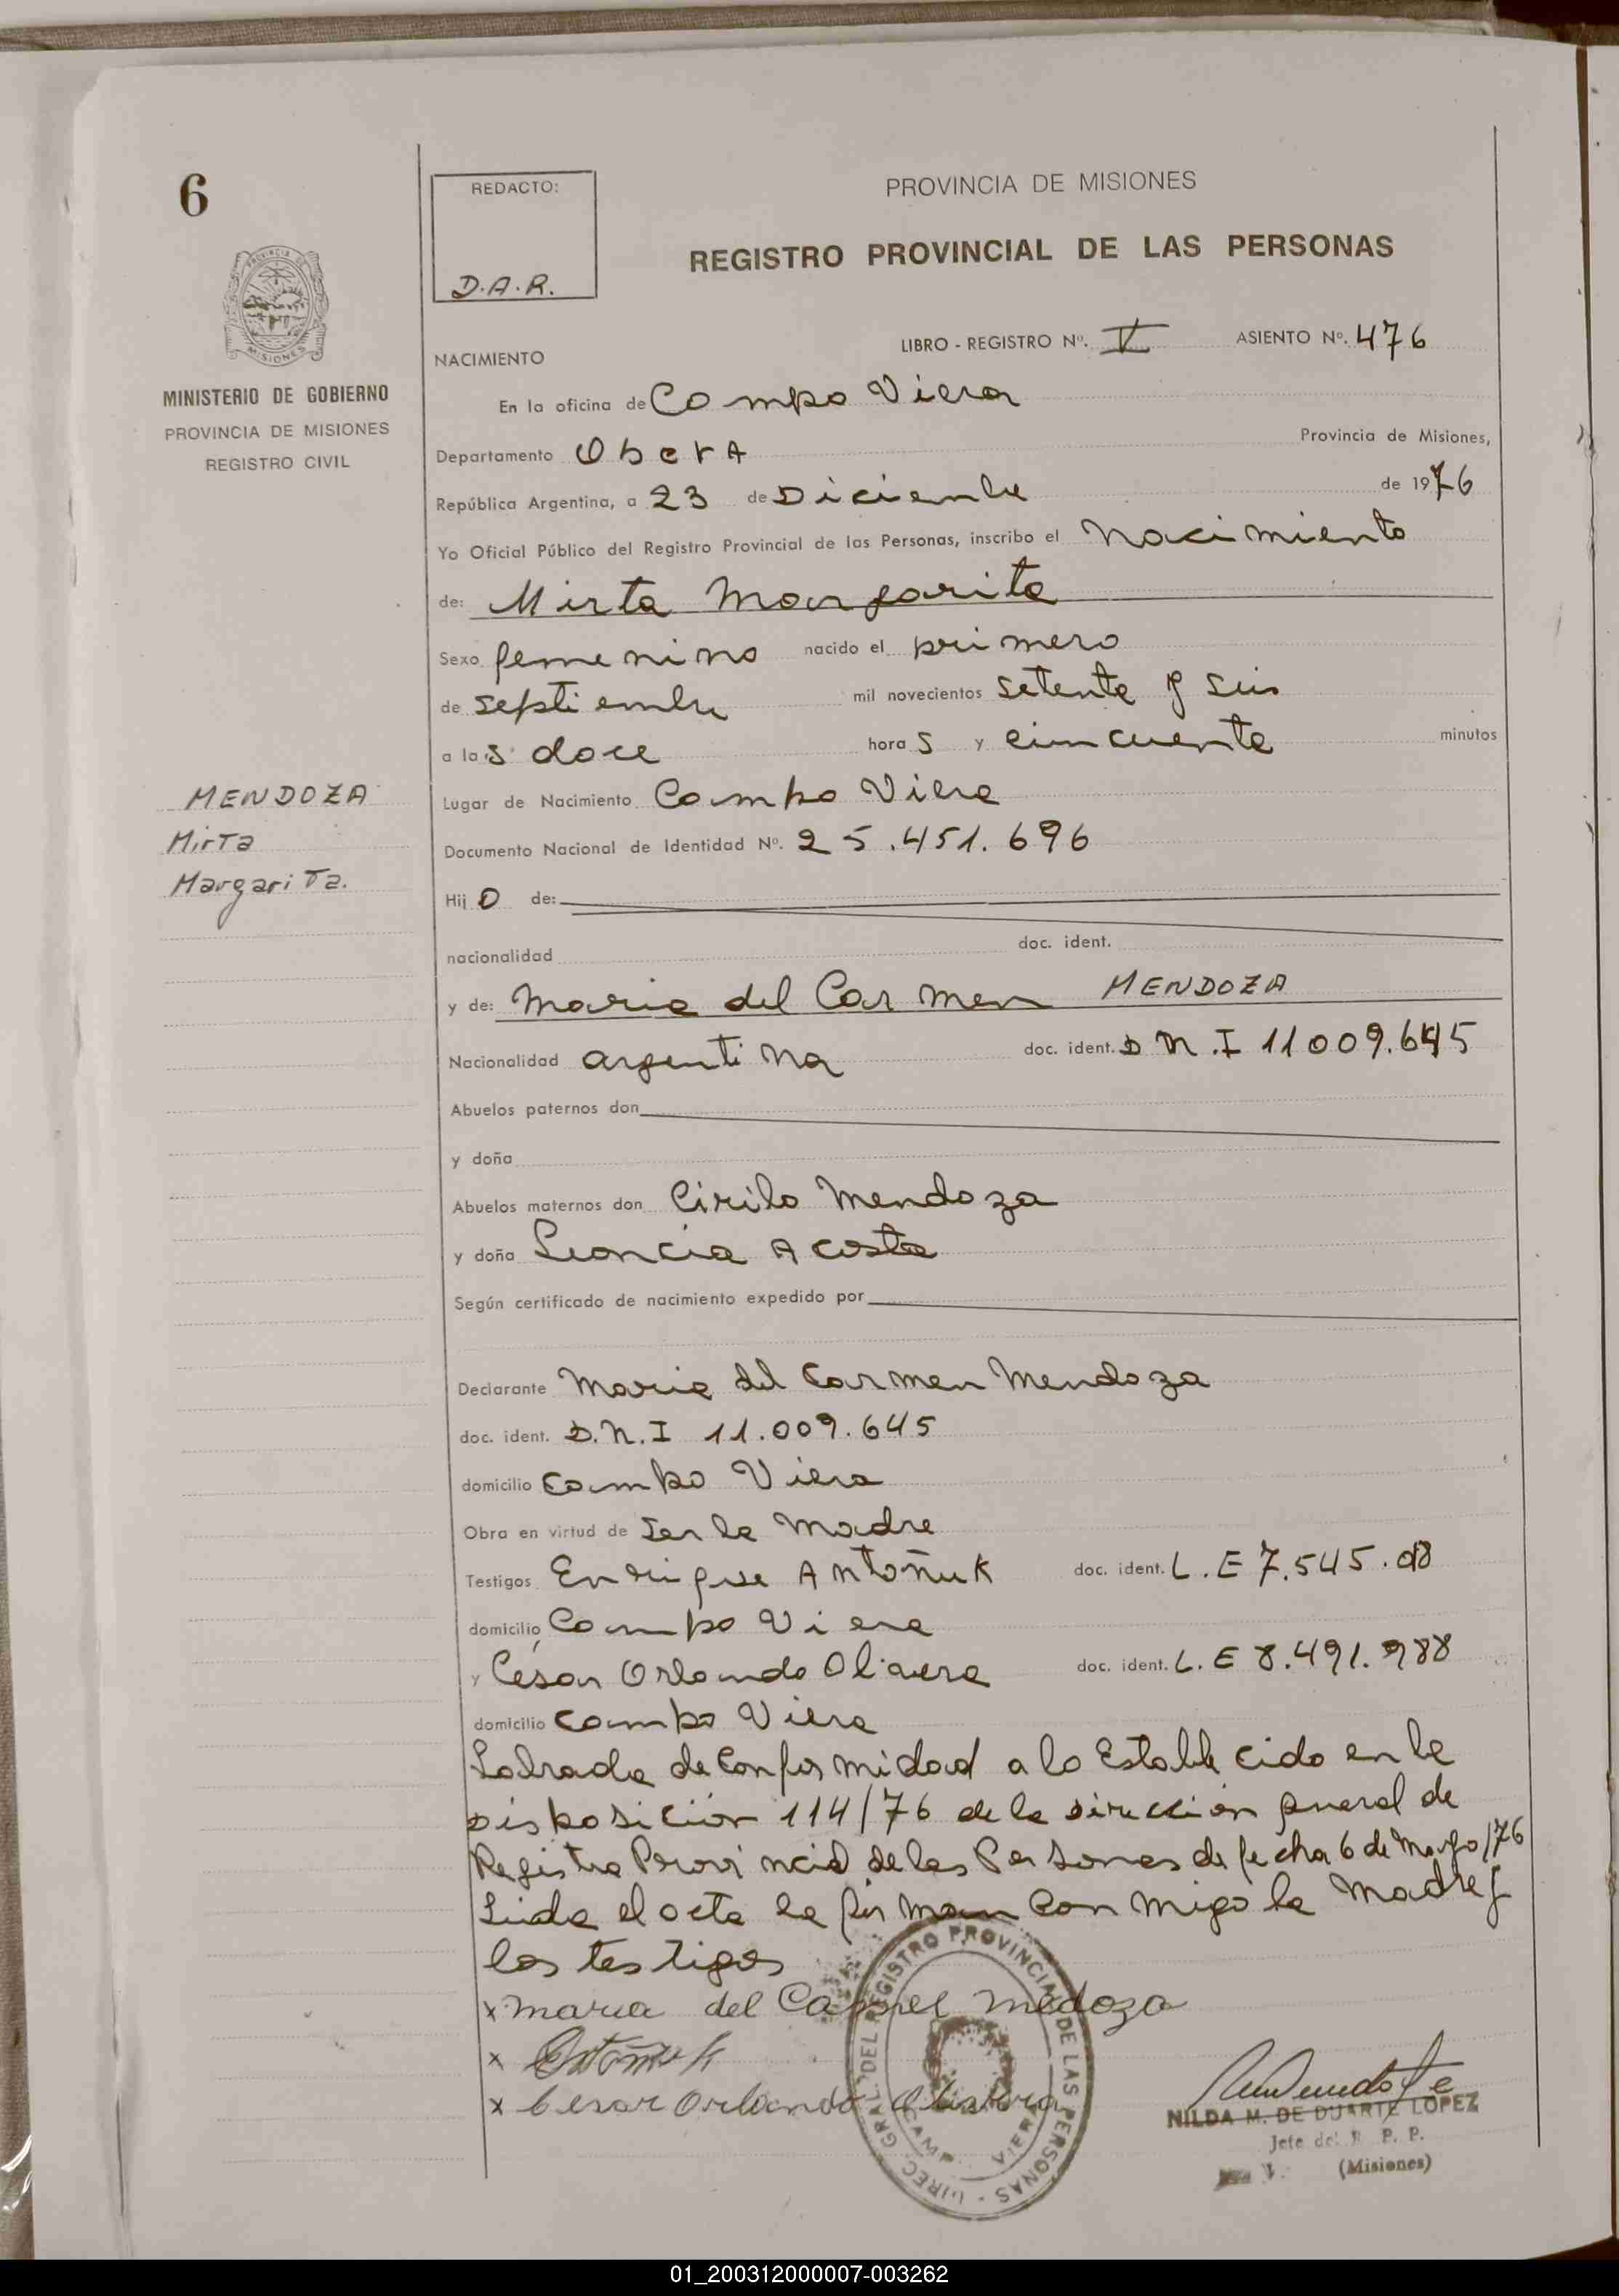 6
REDACTO:
D.A.R.
PROVINCIA DE MISIONES
REGISTRO PROVINCIAL DE LAS PERSONAS
PROVINCIA DE
MISIONES
MINISTERIO DE GOBIERNO
PROVINCIA DE MISIONES
REGISTRO CIVIL
NACIMIENTO
LIBRO - REGISTRO Nº. V ASIENTO Nº. 476
En la oficina de Campo Viera
Departamento Oberá Provincia de Misiones,
República Argentina, a 23 de Diciembre de 1976
Yo Oficial Público del Registro Provincial de las Personas, inscribo el Nacimiento
de: Mirta Margarita
Sexo femenino nacido el primero
de septiembre mil novecientos setenta y seis
a las doce horas y cincuenta minutos
MENDOZA
Mirta
Margarita.
Lugar de Nacimiento Campo Viera
Documento Nacional de Identidad Nº. 25.451.696
Hijo de:
nacionalidad doc. ident.
y de: Maria del Carmen MENDOZA
Nacionalidad argentina doc. ident. D N.I 11009.645
Abuelos paternos don
y doña
Abuelos maternos don Cirilo Mendoza
y doña Leoncia Acosta
Según certificado de nacimiento expedido por
Declarante Maria del Carmen Mendoza
doc. ident. D.N.I 11.009.645
domicilio Campo Viera
Obra en virtud de Ser la Madre
Testigos Enrique Antoñuk doc. ident. L.E 7.545.
domicilio Campo Viera
y César Orlando Olivera doc. ident. L.E 8.491.988
domicilio Campo Viera
Labrada de Conformidad a lo Establecido en la
Disposición 114/76 de la Dirección general de
Registro Provincial de las Personas de fecha 6 de /76
Leida el acta la firman Conmigo la Madre y
los testigos
x maria del Carmel medoza
x Antoñuk
x Cesar Orlando Olivera
DIREC. GRAL. DEL REGISTRO PROVINCIAL DE LAS PERSONAS
CAMPO VIERA
NILDA M. DE DUARTE LOPEZ
Jefe del R. P. P.
(Misiones)
01_200312000007-003262